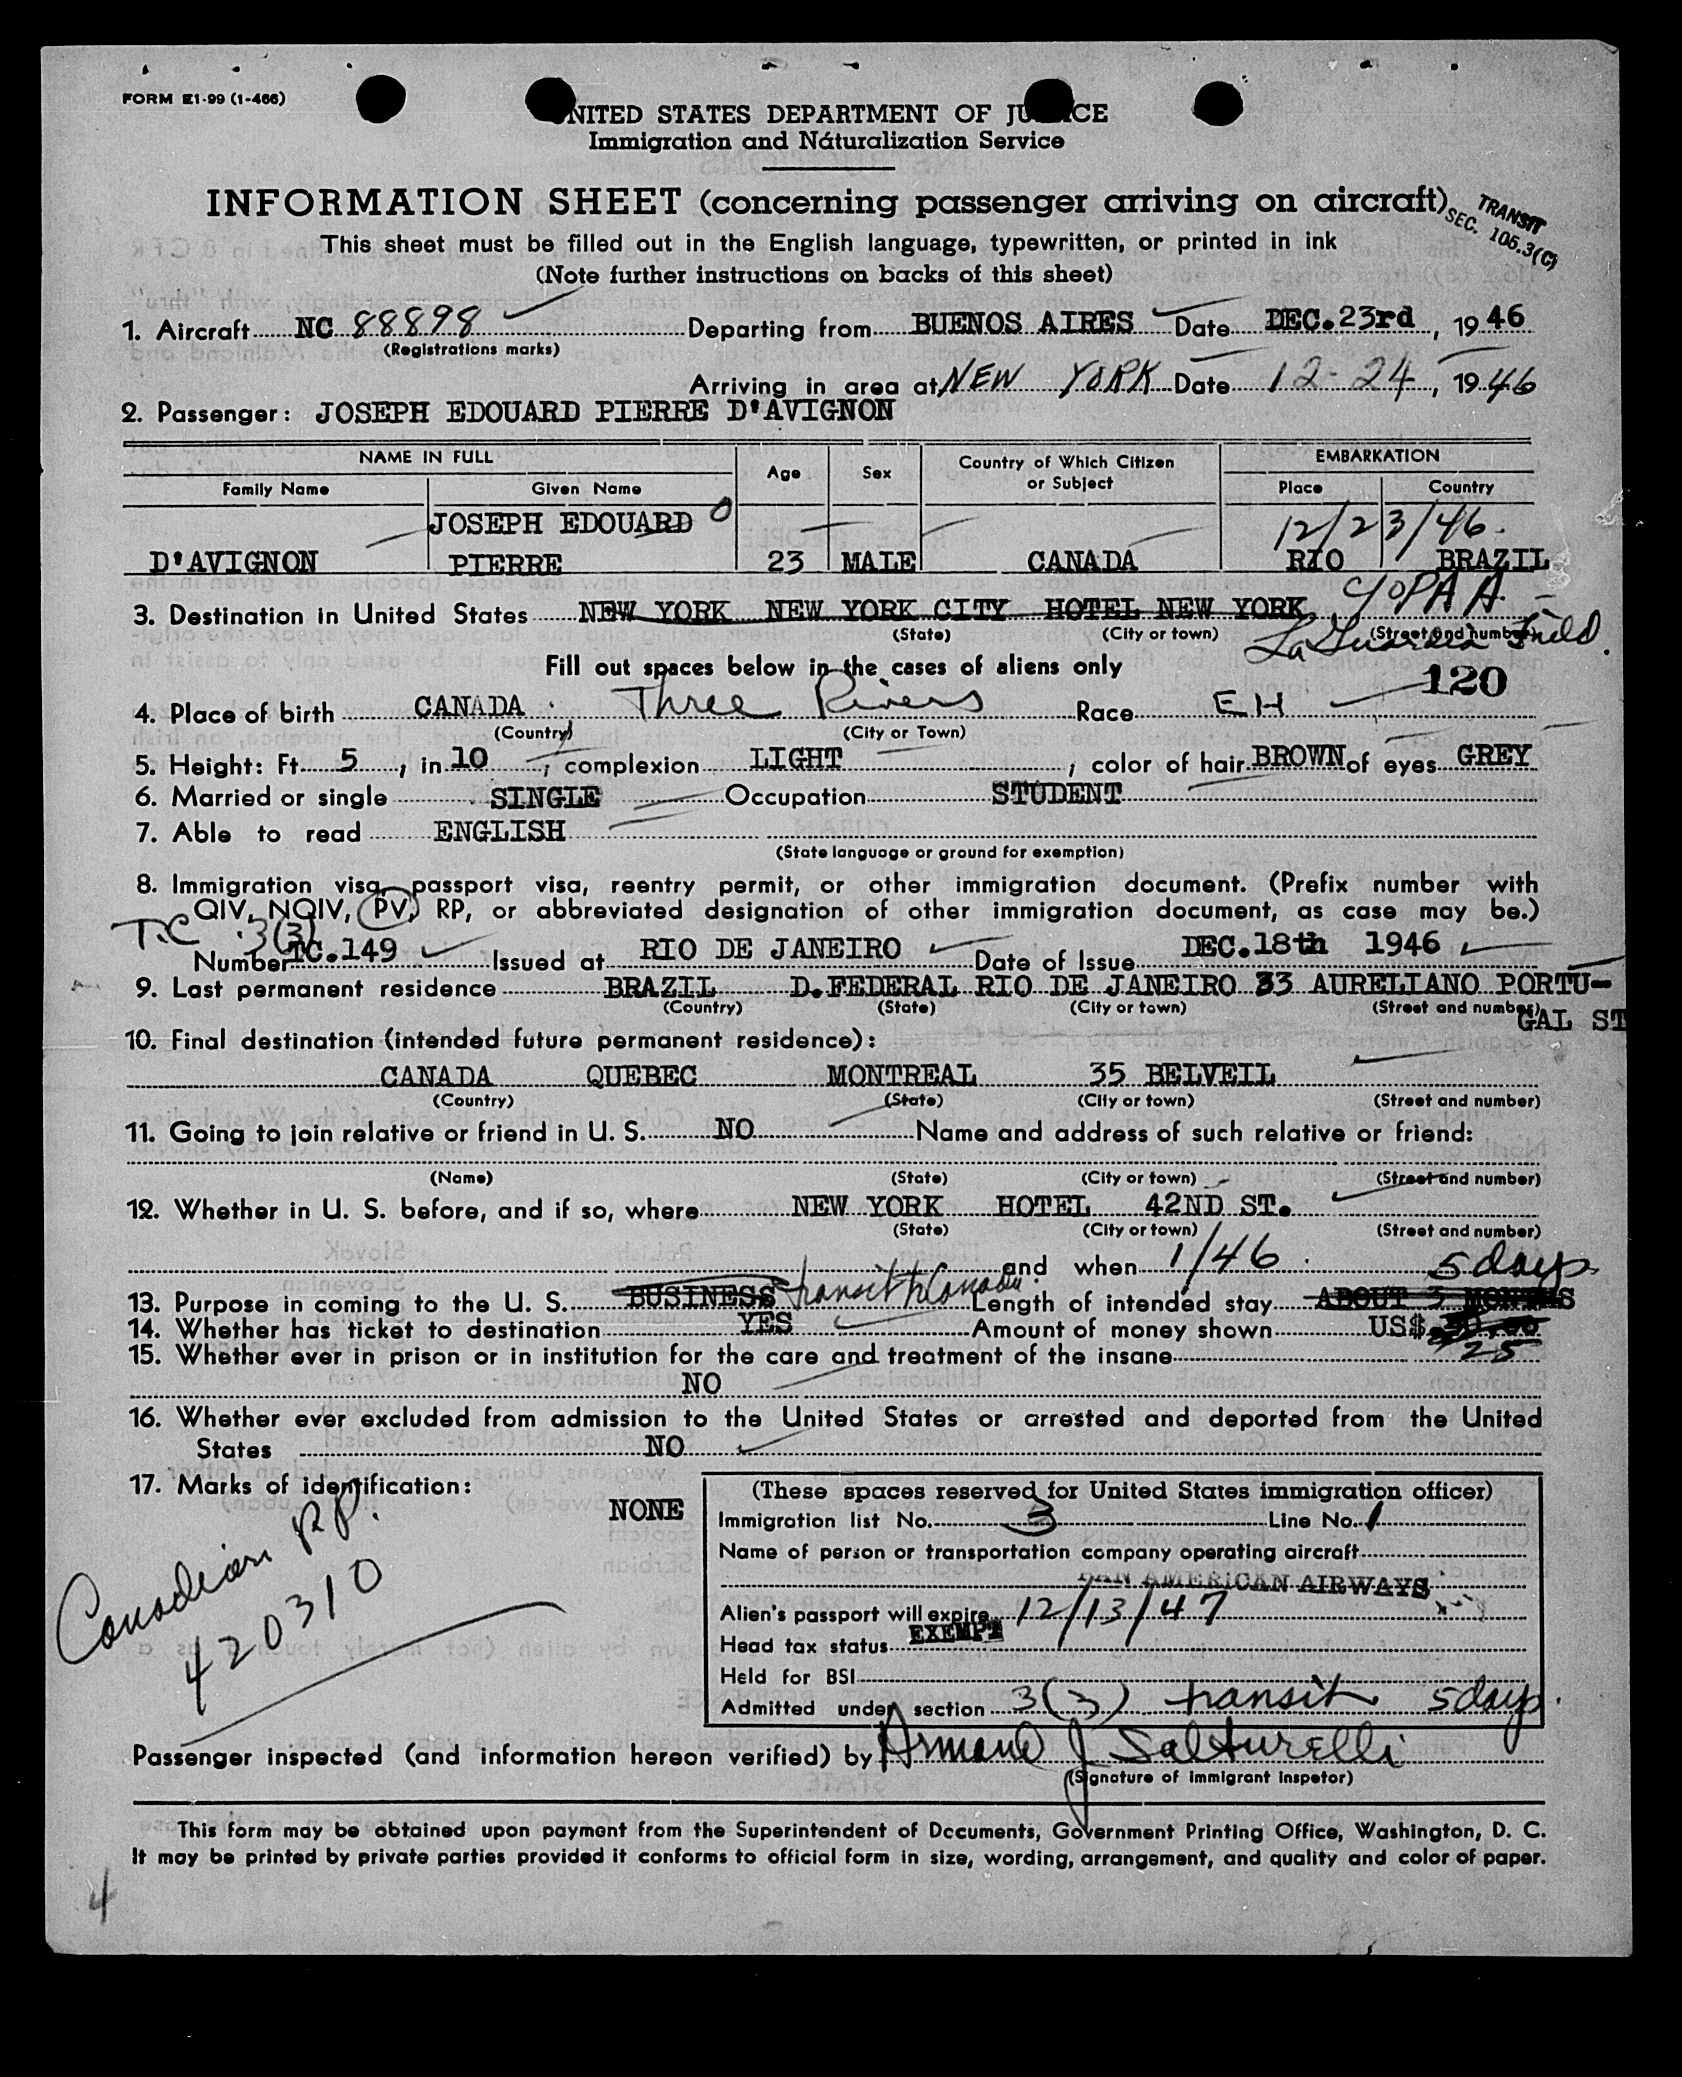 FORM E1-99 (1-466)
UNITED STATES DEPARTMENT OF JUSTICE
Immigration and Naturalization Service
INFORMATION SHEET (concerning passenger arriving on aircraft)
TRANSIT
SEC. 105.3(C)
This sheet must be filled out in the English language, typewritten, or printed in ink
(Note further instructions on backs of this sheet)
1. Aircraft NC 88898 Departing from BUENOS AIRES Date DEC.23rd, 1946
(Registrations marks)
Arriving in area at NEW YORK Date 12-24, 1946
2. Passenger: JOSEPH EDOUARD PIERRE D'AVIGNON
NAME IN FULL Age Sex Country of Which Citizen or Subject EMBARKATION
Family Name Given Name Place Country
JOSEPH EDOUARD 0 12/23/46.
D'AVIGNON PIERRE 23 MALE CANADA RIO BRAZIL
3. Destination in United States NEW YORK NEW YORK CITY HOTEL NEW YORK c/o PAA
(State) (City or town) (Street and number)
La Guardia Field.
Fill out spaces below in the cases of aliens only
120
4. Place of birth CANADA Three Rivers Race EH
(Country) (City or Town)
5. Height: Ft. 5, in. 10; complexion LIGHT; color of hair BROWN of eyes GREY
6. Married or single SINGLE Occupation STUDENT
7. Able to read ENGLISH
(State language or ground for exemption)
8. Immigration visa, passport visa, reentry permit, or other immigration document. (Prefix number with
QIV, NQIV, PV, RP, or abbreviated designation of other immigration document, as case may be.)
T.C 3(3)
Number TC.149 Issued at RIO DE JANEIRO Date of Issue DEC.18th 1946
9. Last permanent residence BRAZIL D.FEDERAL RIO DE JANEIRO 33 AURELIANO PORTU-
(Country) (State) (City or town) (Street and number)
GAL ST
10. Final destination (intended future permanent residence):
CANADA QUEBEC MONTREAL 35 BELVEIL
(Country) (State) (City or town) (Street and number)
11. Going to join relative or friend in U. S. NO Name and address of such relative or friend:
(Name) (State) (City or town) (Street and number)
12. Whether in U. S. before, and if so, where NEW YORK HOTEL 42ND ST.
(State) (City or town) (Street and number)
and when 1/46. 5 days
13. Purpose in coming to the U. S. BUSINESS transit to Canada Length of intended stay ABOUT 3 MONTHS
14. Whether has ticket to destination YES Amount of money shown US$ 30,00
25
15. Whether ever in prison or in institution for the care and treatment of the insane
NO
16. Whether ever excluded from admission to the United States or arrested and deported from the United
States NO
17. Marks of identification:
NONE
Canadian P.P.
420310
(These spaces reserved for United States immigration officer)
Immigration list No. 3 Line No. 1
Name of person or transportation company operating aircraft
PAN AMERICAN AIRWAYS
Alien's passport will expire 12/13/47
Head tax status EXEMPT
Held for BSI
Admitted under section 3(3) transit 5 days.
Passenger inspected (and information hereon verified) by Armand J Salturelli
(Signature of immigrant inspetor)
This form may be obtained upon payment from the Superintendent of Documents, Government Printing Office, Washington, D. C.
It may be printed by private parties provided it conforms to official form in size, wording, arrangement, and quality and color of paper.
4